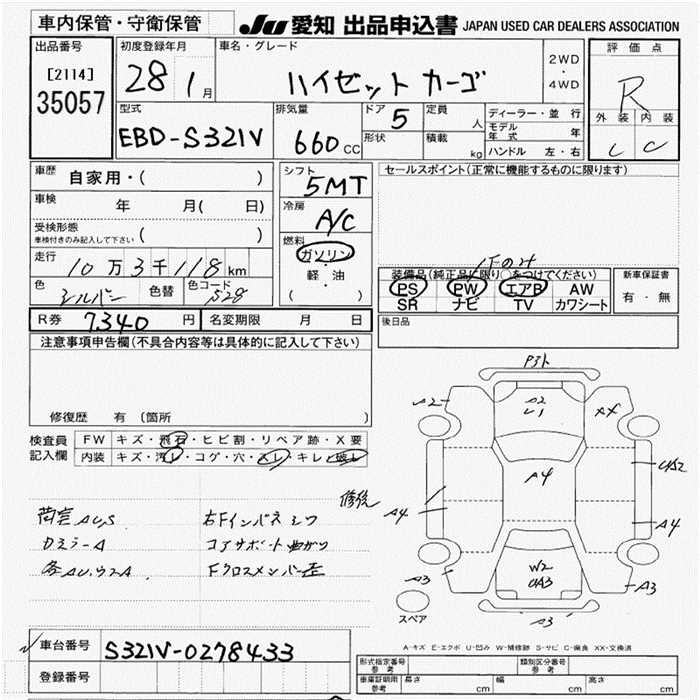 車内保管・守衛保管
JU 愛知 出品申込書 JAPAN USED CAR DEALERS ASSOCIATION
出品番号
[2114]
35057
初度登録年月
28 1月
車名・グレード
ハイゼット カーゴ
2WD
・
4WD
評価点
R
外装 内装
C
型式
EBD-S321V
排気量
660 CC
ドア 5
形状
定員 人
積載 kg
ディーラー・並行
モデル年式 年
ハンドル 左・右
車歴 自家用・( )
車検 年 月( 日)
受検形態
車検付きのみ記入して下さい ( )
走行 10万3千118km
色 シルバー 色替 色コード S28
シフト
5MT
冷房
A/C
燃料
ガソリン
・
軽・油
( )
セールスポイント(正常に機能するものに限ります)
装備品(純正品に限り○をつけてください)
PS PW エアB AW
SR ナビ TV カワシート
新車保証書
有・無
R券 7340円 名変期限 月 日
後日品
注意事項申告欄(不具合内容等は具体的に記入して下さい)
修復歴 有 (箇所 )
検査員
記入欄
FW キズ・飛石・ヒビ割・リペア跡・X要
内装 キズ・汚レ・コゲ・穴・スレ・キレ・破レ
荷室AU,S 右Fインパネシワ
DミラーA コアサポート曲がり
各AU.ウスA Fクロスメンバー歪
修復
P3ト
A2
A2
U1
A4
UA2
A4
A4
A3
W2
UA3
A3
A3
スペア
A-キズ E-エクボ U-凹み W-補修跡 S-サビ C-腐食 XX-交換済
車台番号 S321V-0278433
登録番号
形式指定番号
参考
類別区分番号
参考
車庫証明用
参考
長さ cm 幅 cm 高さ cm